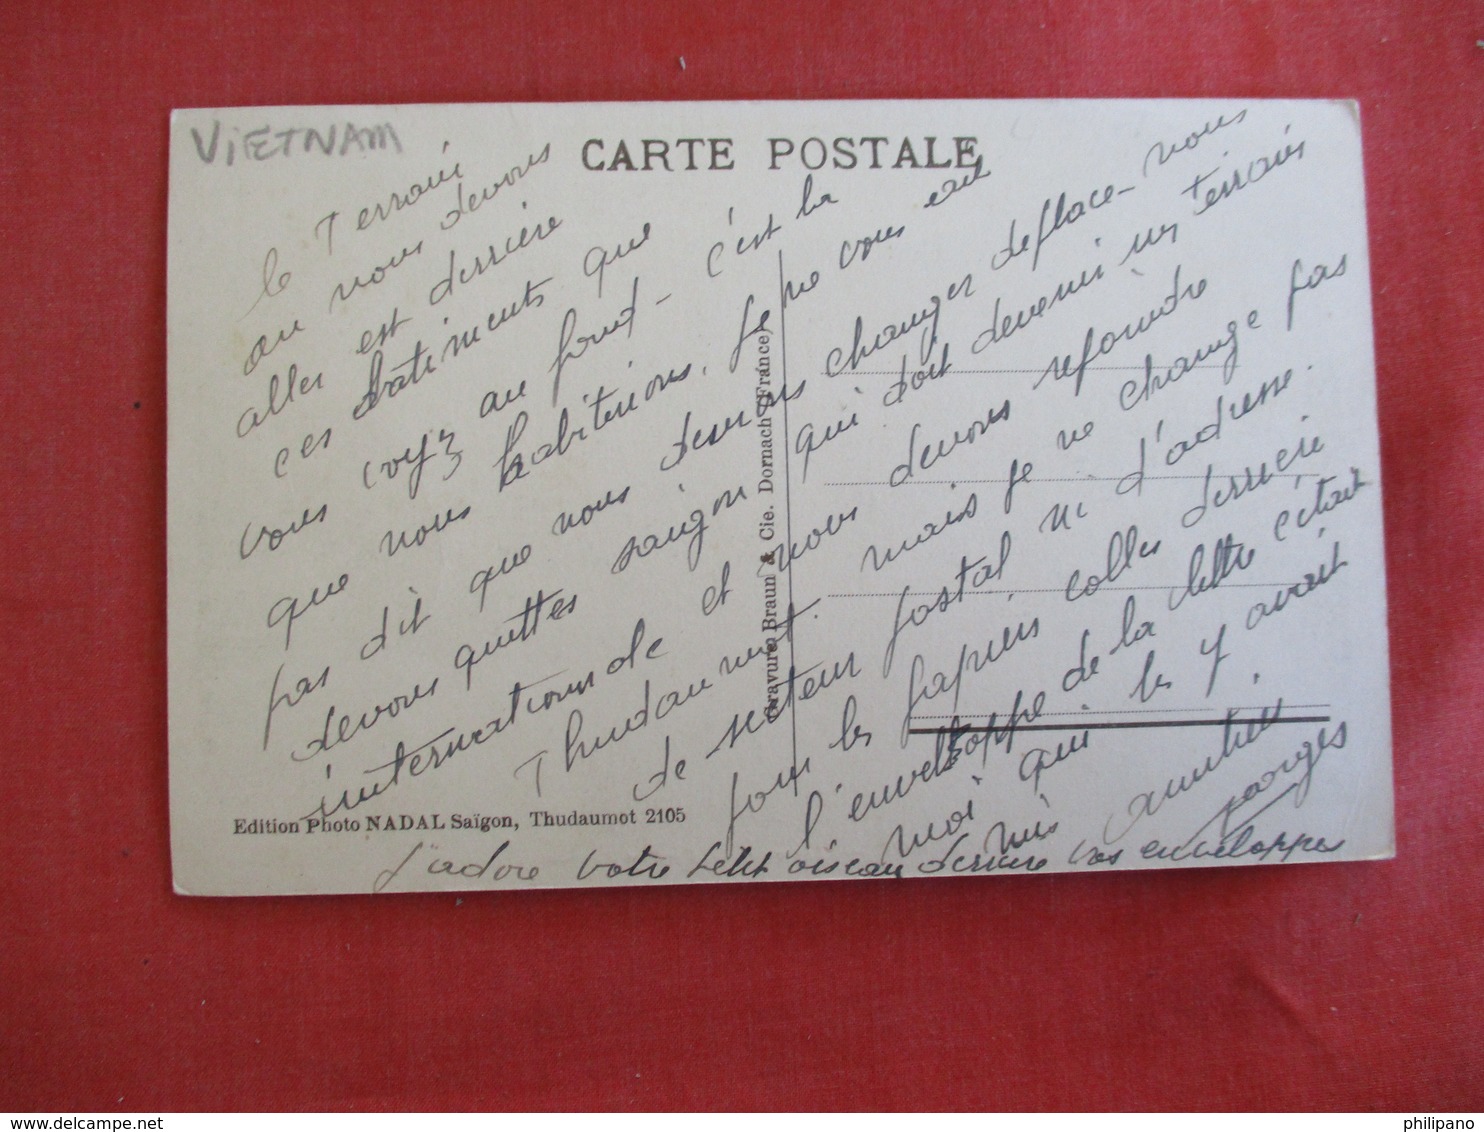 VIETNAM
CARTE POSTALE
le Terrain
ou nous devons
aller est derrière
ces bâtiments que
vous voyez au fond - c'est la
que nous habiterions. Je ne vous eut
pas dit que nous devrions changer de place - nous
devons quittes saigon qui doit devenir un terrains
internationnale et nous devons rejoindre
Thudaumot. mais je ne change pas
de secteur postal ni d'adresse.
pour les papiers colles derrière
l'enveloppe de la lettre c'était
moi qui les y avait
mis amities
georges
J'adore votre petit oiseau derriere vos enveloppes
Edition Photo NADAL Saïgon, Thudaumot 2105
Gravure Braun & Cie. Dornach (France)
philipano